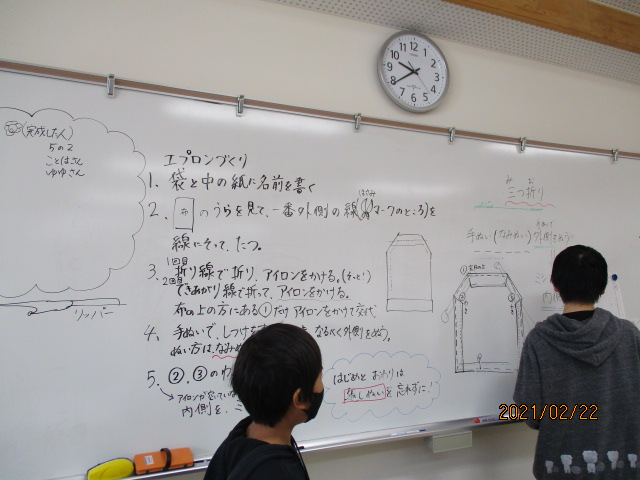 (完成した人)
5の2
ことはさん
ゆゆさん
リッパー
エプロンづくり
1. 袋と中の紙に名前を書く
2. のうらを見て、一番外側の線(はさみマークのところ)を
線にそって、たつ。
3. 1回目 折り線で折り、アイロンをかける。
2回目 できあがり線で折って、アイロンをかける。
布の上の方にある①だけアイロンをかけて交代
4. 手ぬいで、しつけを なるべく外側をぬう。
ぬい方は、なみぬ
5. ②、③の
内側を、
はじめと おわりは
返しぬいを忘れずに!
みお
三つ折り
手ぬい(なみぬい)
外側をぬう
12 1 2 3 4 5 6 7 8 9 10 11
2021/02/22